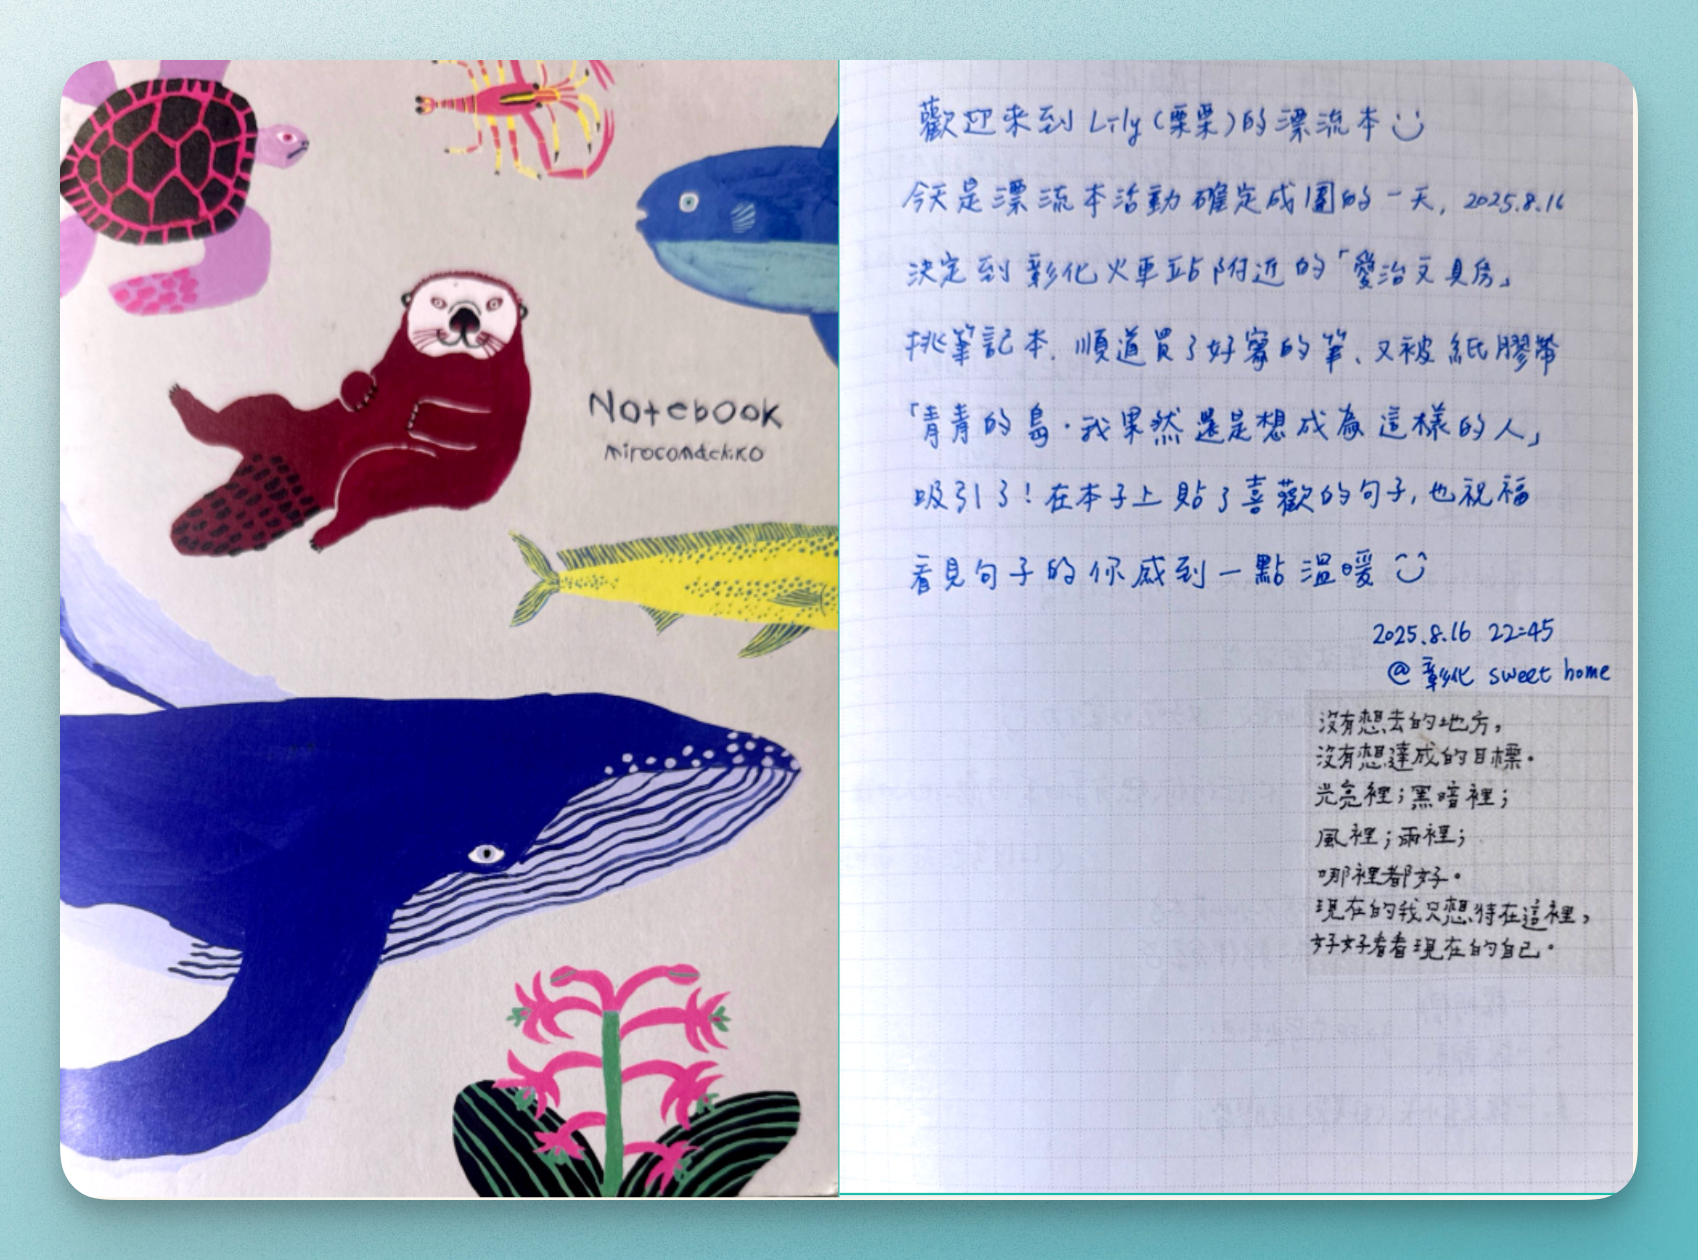 Notebook
mirocomachiko
歡迎來到 Lily (栗栗) 的漂流本
今天是漂流本活動確定成團的一天, 2025.8.16
決定到彰化火車站附近的「愛治文具房」
挑筆記本、順道買了好寫的筆、又被紙膠帶
「青青的島·我果然還是想成為這樣的人」
吸引了!在本子上貼了喜歡的句子,也祝福
看見句子的你感到一點溫暖
2025.8.16 22:45
@ 彰化 sweet home
沒有想去的地方,
沒有想達成的目標。
光亮裡;黑暗裡;
風裡;雨裡;
哪裡都好。
現在的我只想待在這裡,
好好看看現在的自己。